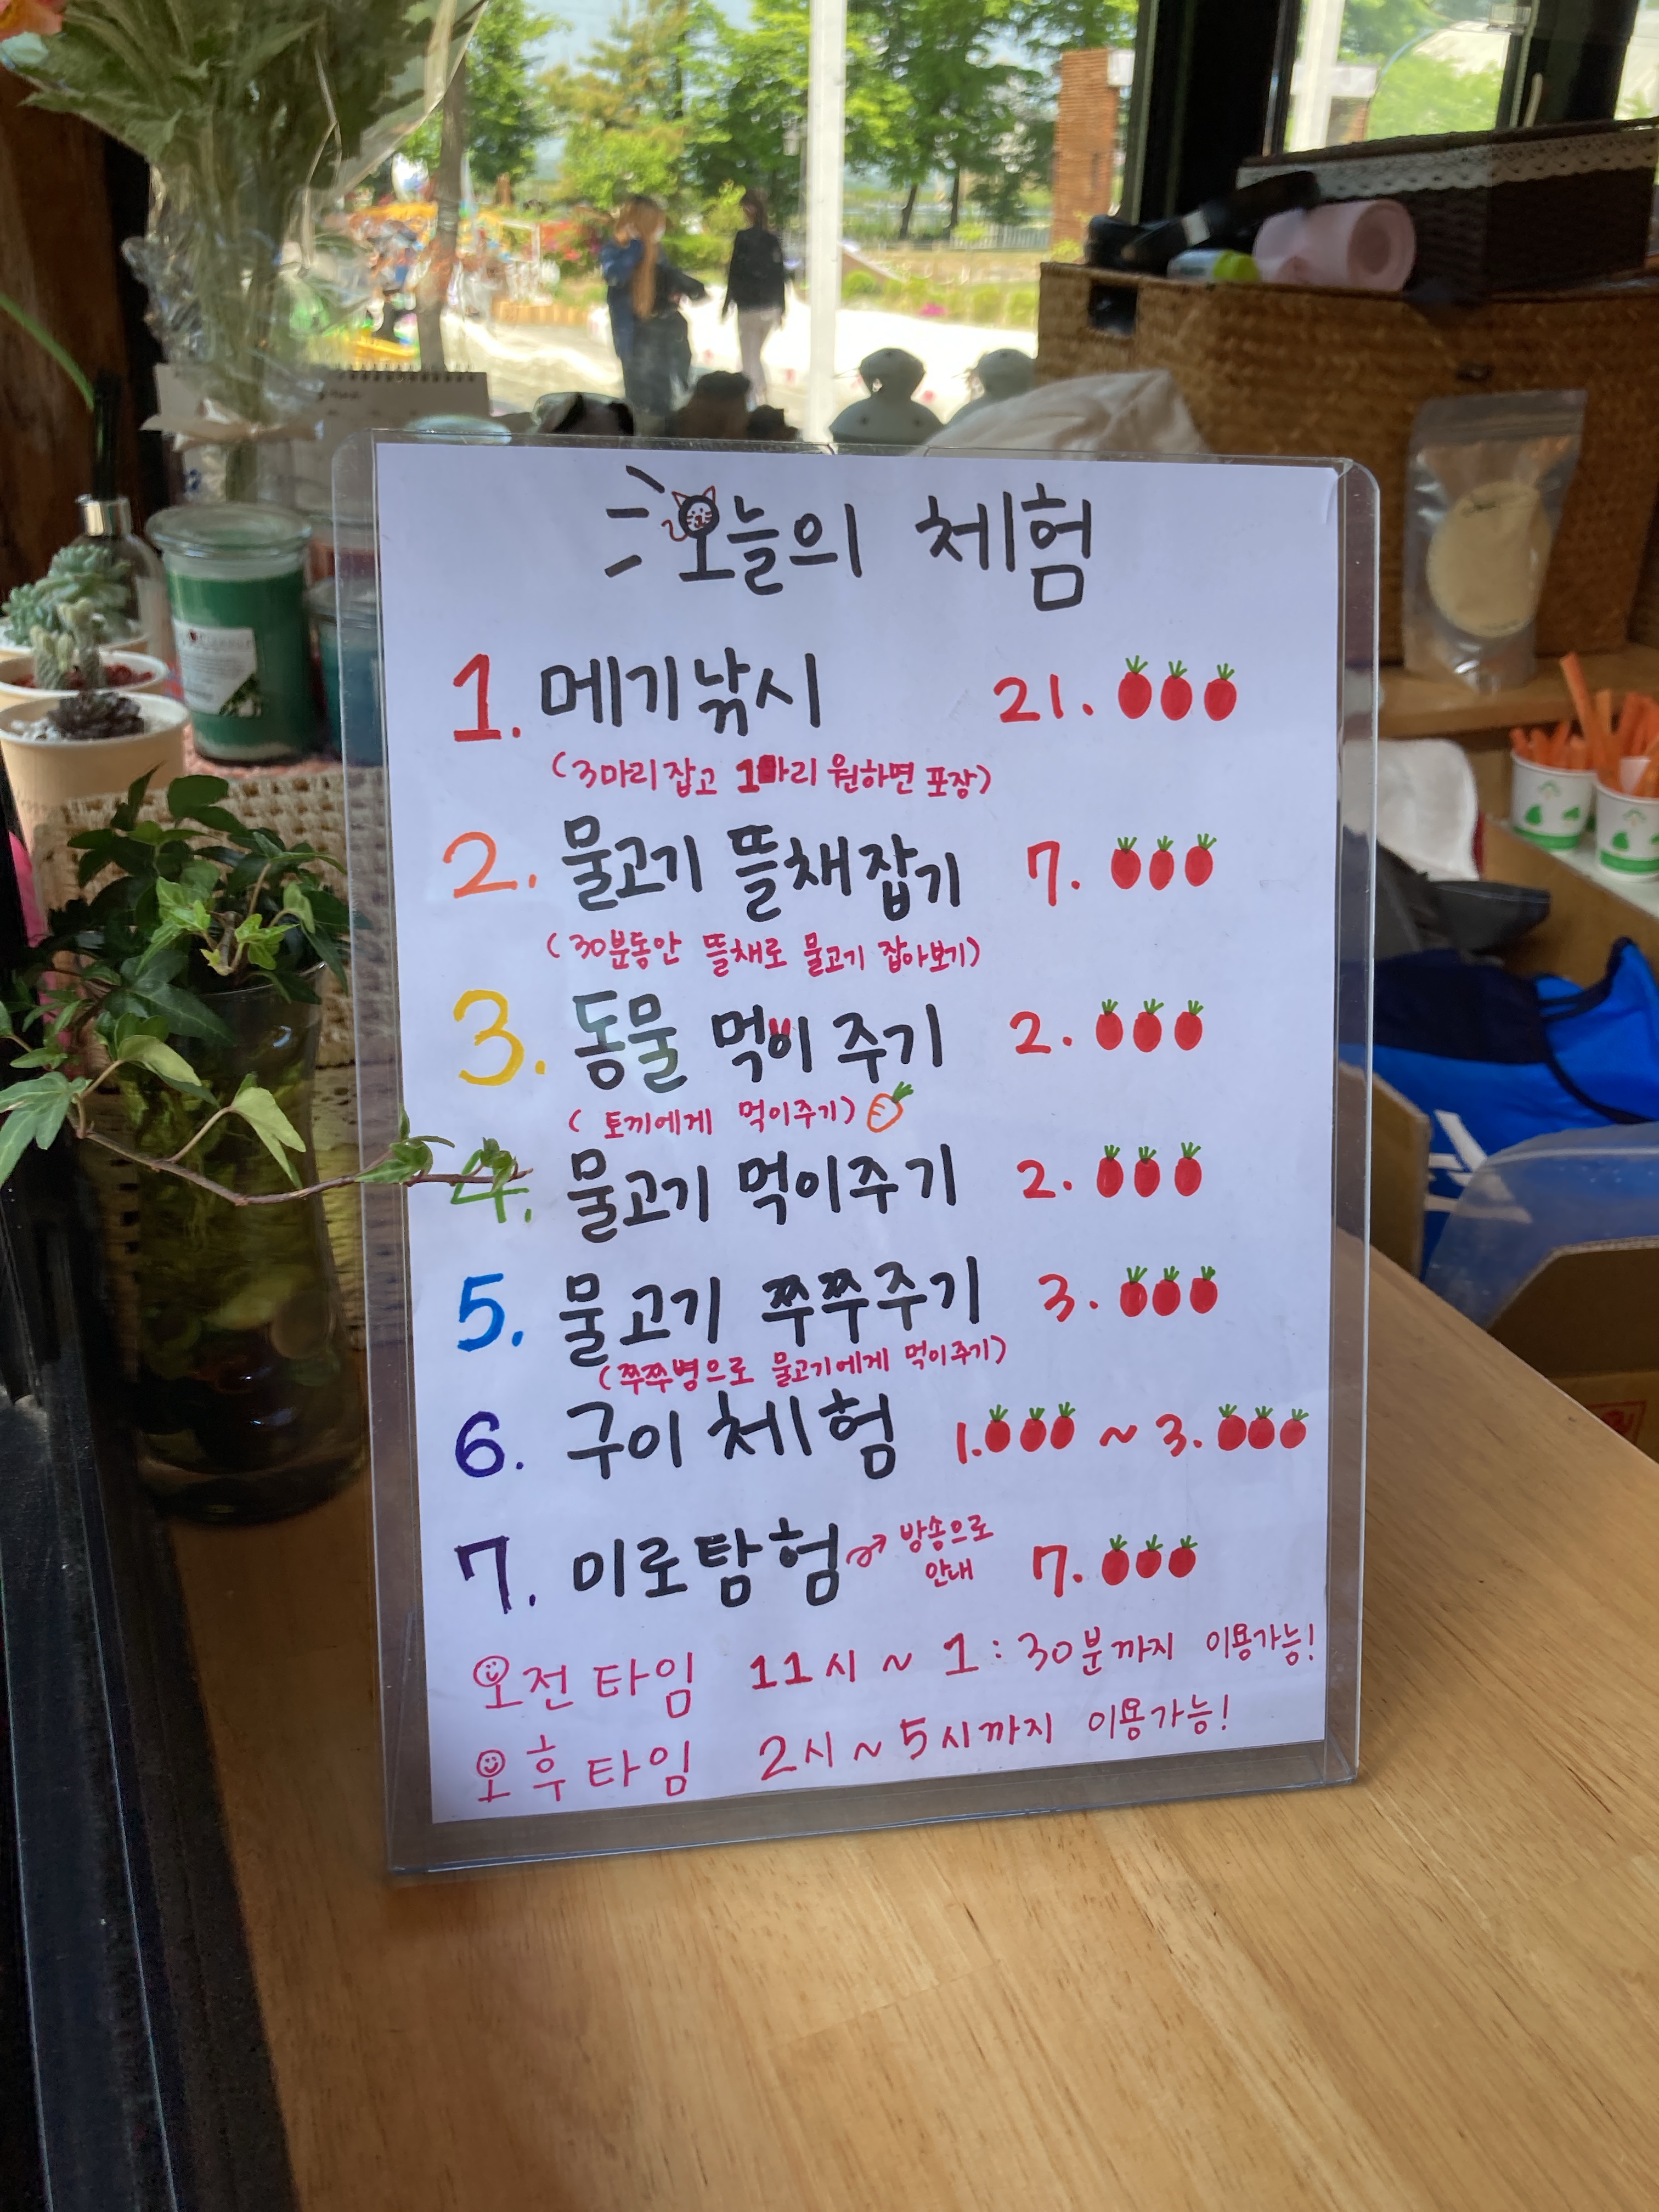 오늘의 체험
1. 메기낚시 21.000
(3마리잡고 1마리 원하면 포장)
2. 물고기 뜰채잡기 7.000
(30분동안 뜰채로 물고기 잡아보기)
3. 동물 먹이 주기 2.000
(토끼에게 먹이주기)
4. 물고기 먹이주기 2.000
5. 물고기 쭈쭈주기 3.000
(쭈쭈병으로 물고기에게 먹이주기)
6. 구이 체험 1.000 ~ 3.000
7. 미로탐험 방송으로 안내 7.000
오전 타임 11시 ~ 1:30분까지 이용가능!
오후 타임 2시 ~ 5시까지 이용가능!